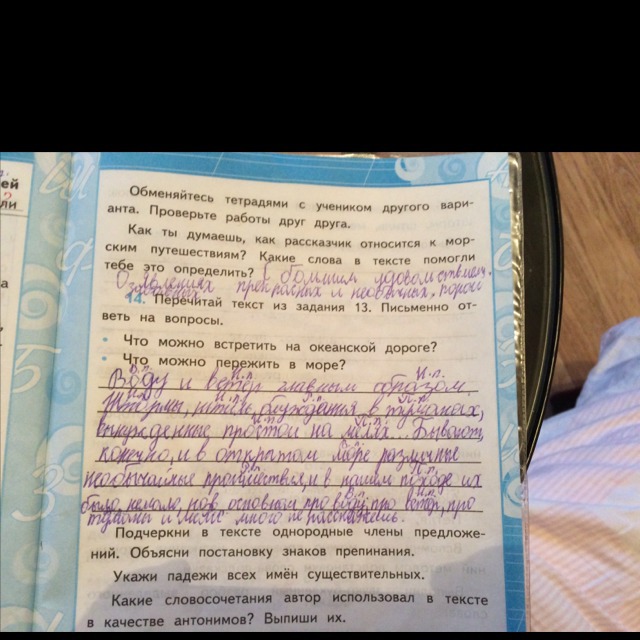 ей
ли
Обменяйтесь тетрадями с учеником другого вари-
анта. Проверьте работы друг друга.
Как ты думаешь, как рассказчик относится к мор-
ским путешествиям? Какие слова в тексте помогли
тебе это определить? С большим удовольствием.
О явлениях прекрасных и необычных,
14. Перечитай текст из задания 13. Письменно от-
веть на вопросы.
• Что можно встретить на океанской дороге?
• Что можно пережить в море?
И.п.
Воду и ветер главным образом.
Штормы, штили, блуждания в туманах,
вынужденные простои на мелях... Бывают,
конечно, и в открытом море различные
необычайные происшествия, и в нашем походе их
было немало, но в основном про воду, про ветер, про
туманы и мели много не расскажешь.
Подчеркни в тексте однородные члены предложе-
ний. Объясни постановку знаков препинания.
Укажи падежи всех имён существительных.
Какие словосочетания автор использовал в тексте
в качестве антонимов? Выпиши их.